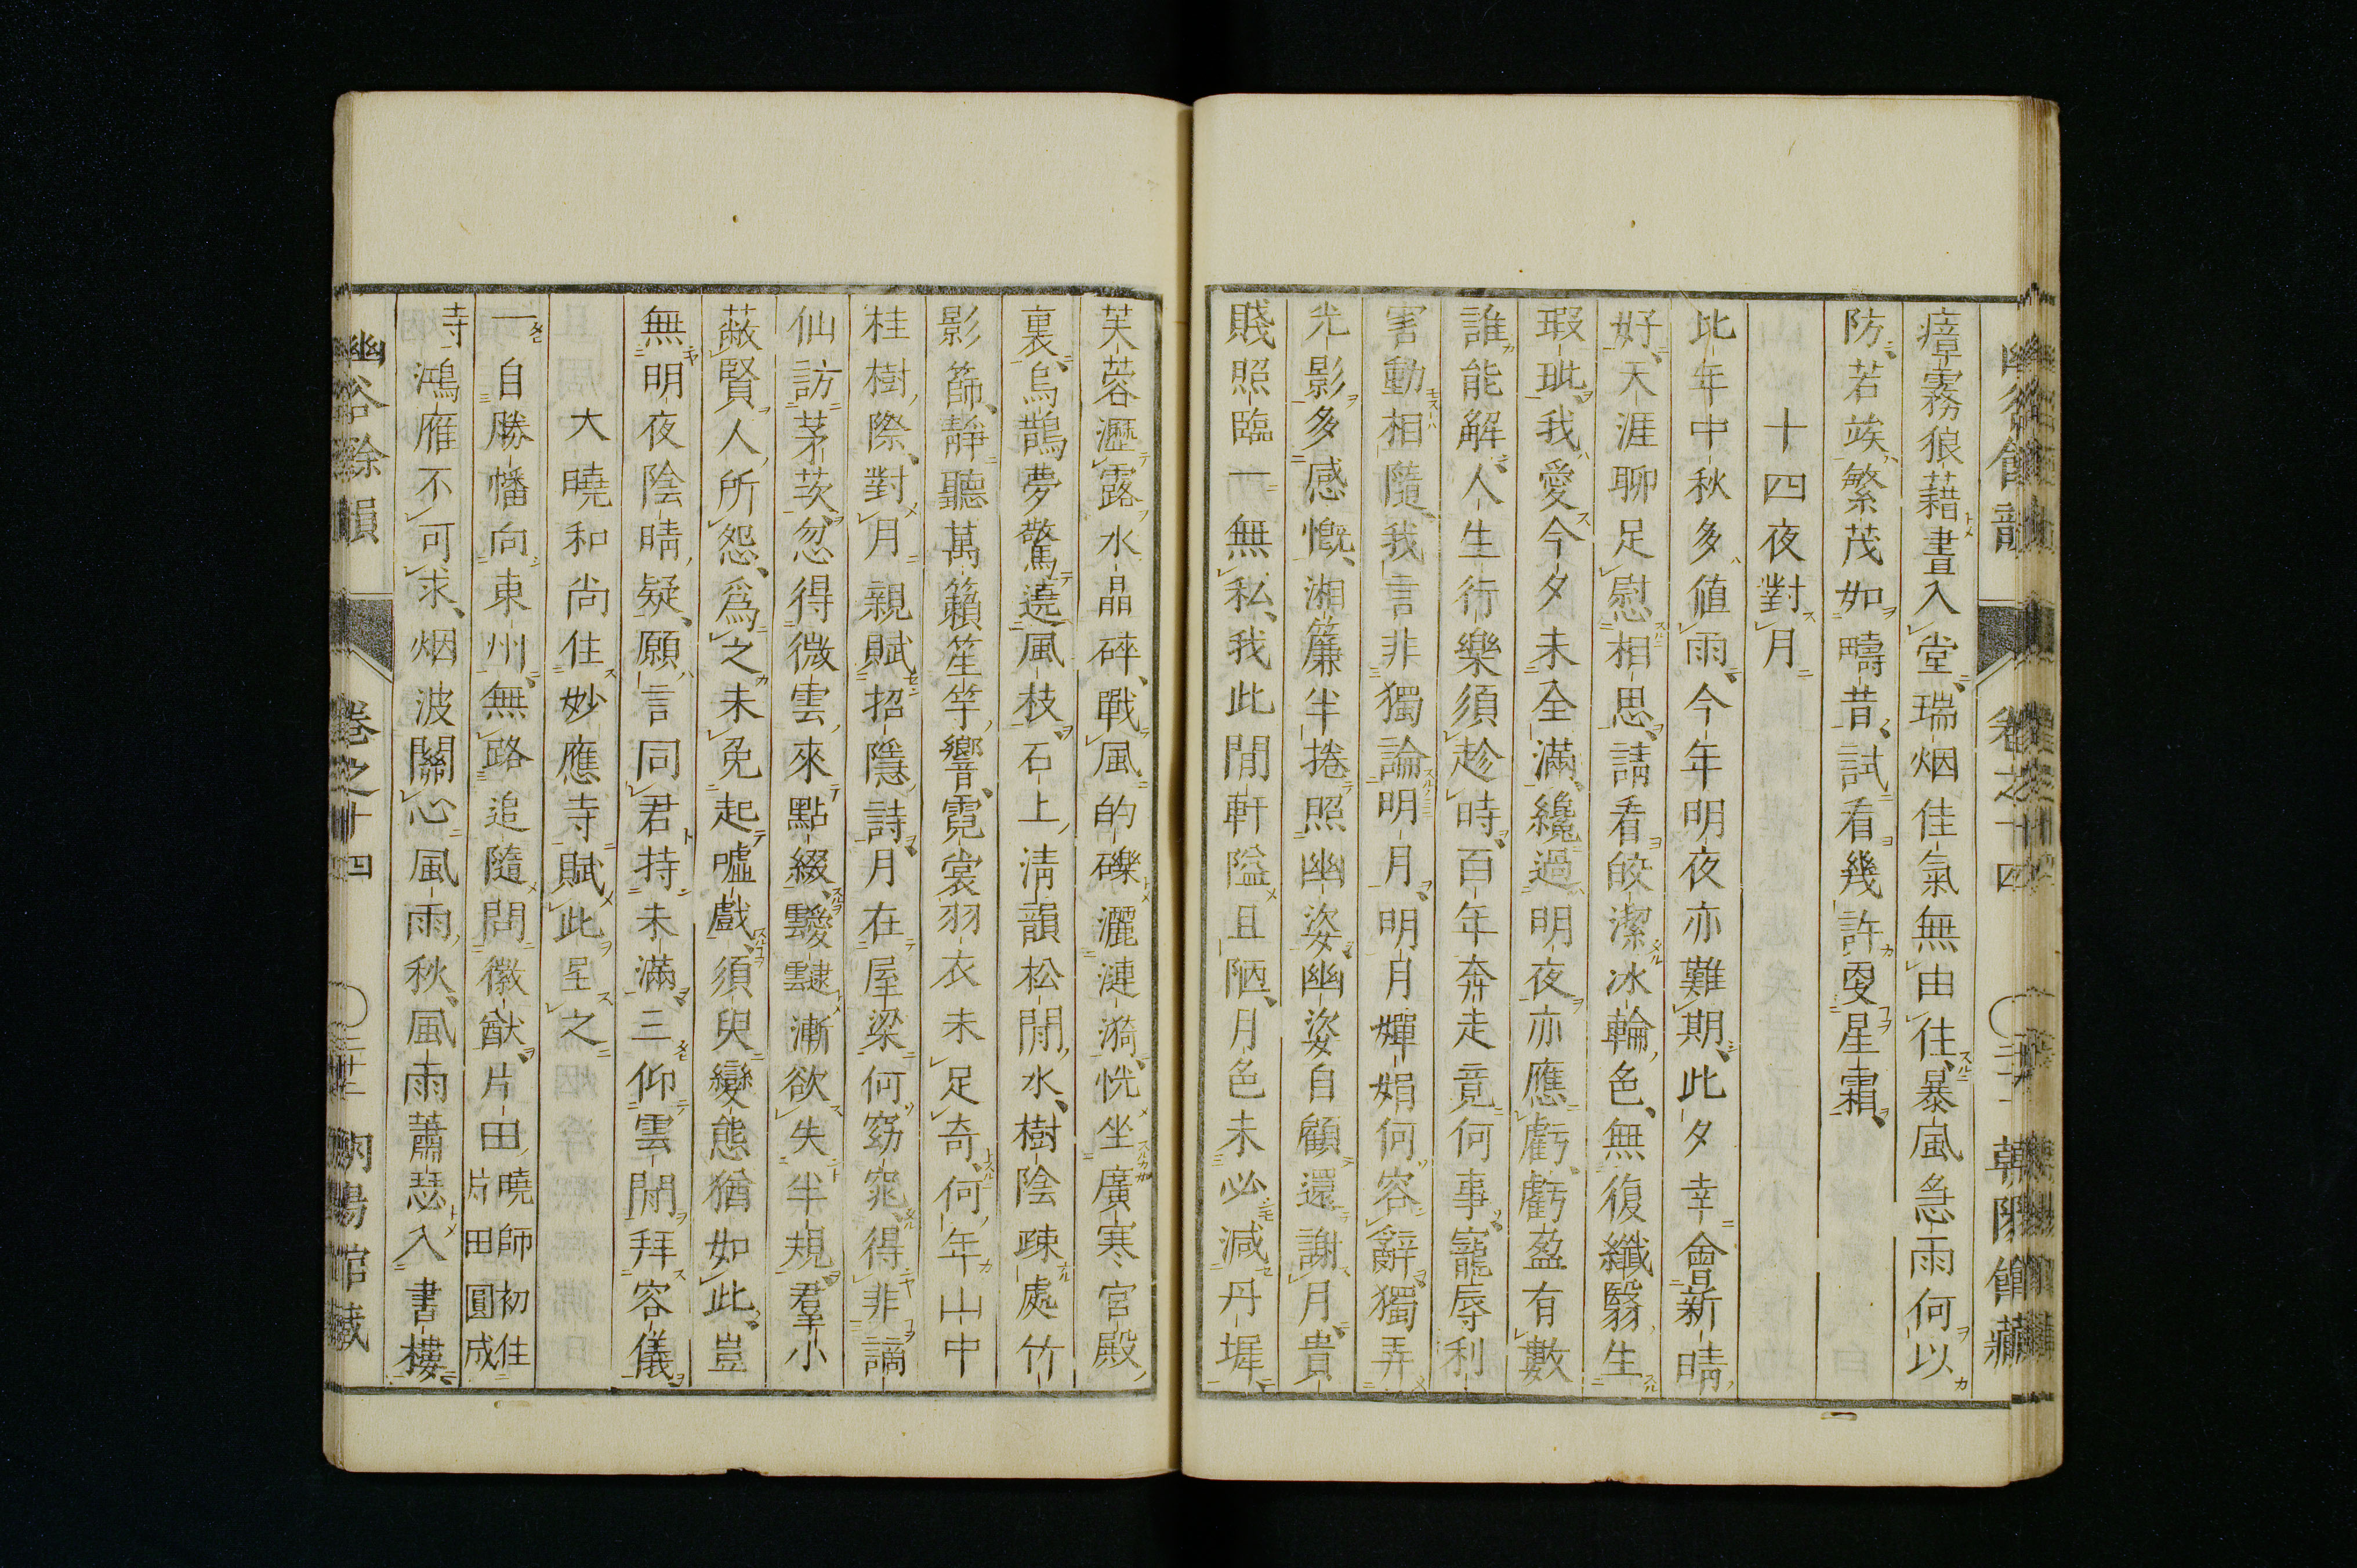 瘴霧狼藉晝入堂瑞烟佳氣無由往暴風急雨何以
防若竢繁茂如疇昔試看幾許𠭇星霜
十四夜對月
比年中秋多値雨今年明夜亦難期此夕幸會新晴
好天涯聊足慰相思請看皎潔冰輪色無復纖翳生
瑕玼我愛今夕未全滿纔過明夜亦應虧虧盈有數
誰能解人生行樂須趁時百年奔走竟何事寵辱利
害動相隨我言非獨論明月明月嬋娟何容辭獨弄
光影多感慨湘簾半捲照幽姿幽姿自顧還謝月貴
賤照臨一無私我此閒軒隘且陋月色未必減丹墀
芙蓉瀝露水晶碎戰風的礫灑漣漪恍坐廣寒宮殿
裏烏鵲夢驚遶風枝石上淸韻松閒水樹陰疎處竹
影篩靜聽萬籟笙竽響霓裳羽衣未足奇何年山中
桂樹際對月親賦招隱詩月在屋梁何窈窕得非謫
仙訪茅茨忽得微雲來點綴靉靆漸欲失半規羣小
蔽賢人所怨爲之未免起噓戲須臾變態猶如此豈
無明夜陰晴疑願言同君持未滿三仰雲閒拜容儀
大曉和尙住妙應寺賦此呈之
一自勝幡向東州無路追隨問徽猷片田曉師初住片田圓成
寺鴻雁不可求烟波關心風雨秋風雨蕭瑟入書樓
幽谷餘韻 卷之十四 〇 朝陽館藏